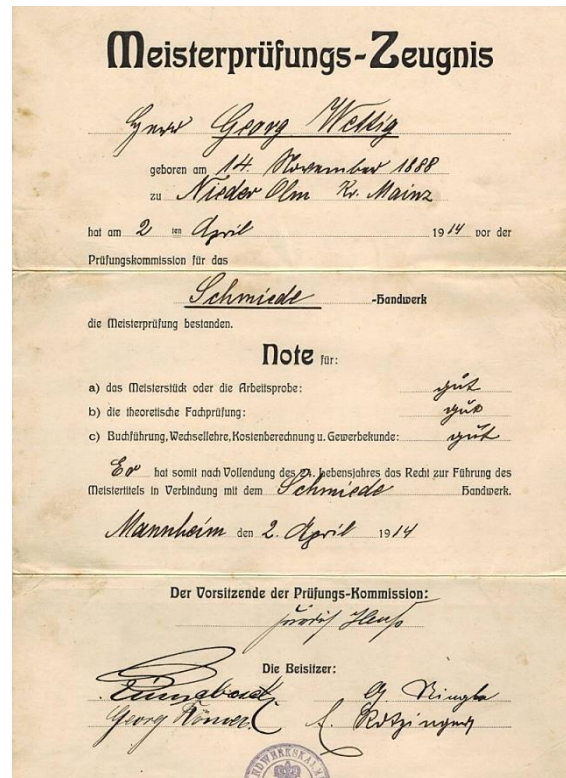 Meisterprüfungs-Zeugnis
Herr Georg Wettig
geboren am 14. November 1888
zu Nieder Olm Kr. Mainz
hat am 2 ten April 1914 vor der
Prüfungskommission für das
Schmiede -Handwerk
die Meisterprüfung bestanden.
Note für:
a) das Meisterstück oder die Arbeitsprobe: gut
b) die theoretische Fachprüfung: gut
c) Buchführung, Wechsellehre, Kostenberechnung u. Gewerbekunde: gut
Er hat somit nach Vollendung des 24. Lebensjahres das Recht zur Führung des
Meistertitels in Verbindung mit dem Schmiede Handwerk.
Mannheim den 2. April 1914
Der Vorsitzende der Prüfungs-Kommission:
Die Beisitzer:
Georg Römer.